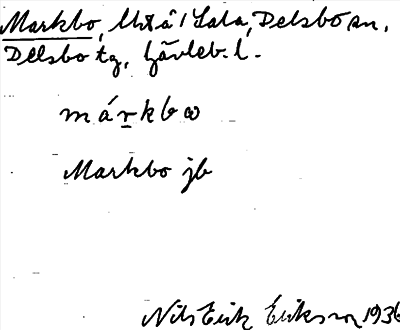 Markbo, Utå i Lala, Delsbo an.
Delsbo tg, Gävleb. l.
márkbω
Markbo jb
Nils Erik Erikson 1936